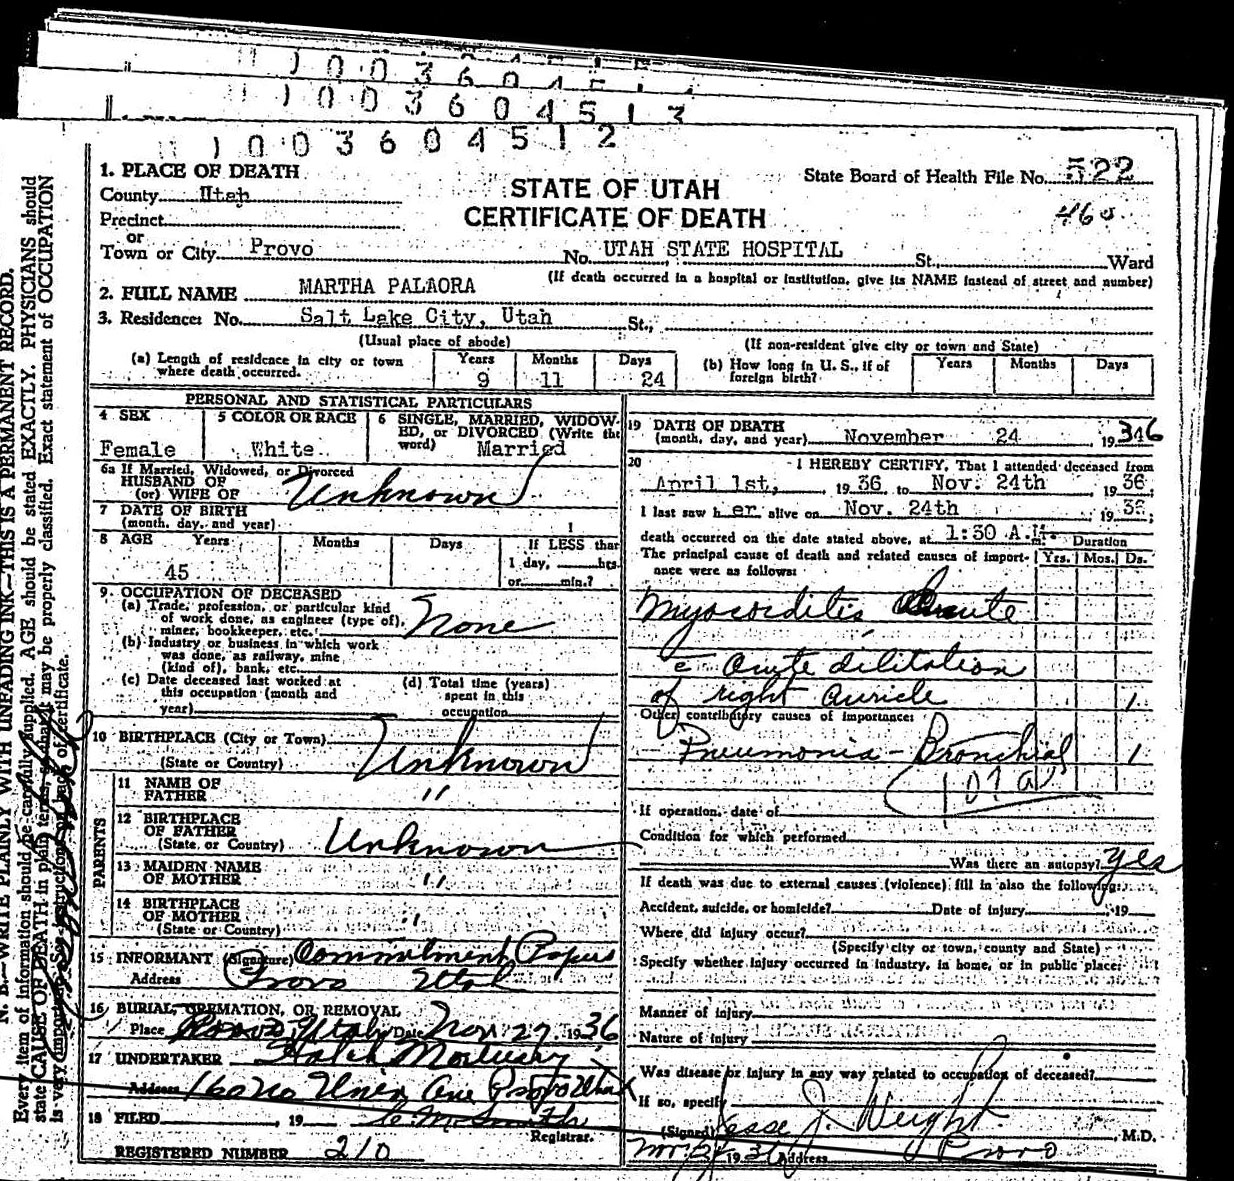 1003604513
1003604512
State Board of Health File No. 522
460
STATE OF UTAH
CERTIFICATE OF DEATH
1. PLACE OF DEATH
County Utah
Precinct
or
Town or City Provo No. UTAH STATE HOSPITAL St. Ward
(If death occurred in a hospital or institution, give its NAME instead of street and number)
2. FULL NAME MARTHA PALAORA
3. Residence: No. Salt Lake City, Utah St.,
(Usual place of abode) (If non-resident give city or town and State)
(a) Length of residence in city or town where death occurred. Years 9 Months 11 Days 24
(b) How long in U. S., if of foreign birth? Years Months Days
PERSONAL AND STATISTICAL PARTICULARS
4 SEX Female
5 COLOR OR RACE White
6 SINGLE, MARRIED, WIDOWED, or DIVORCED (Write the word) Married
6a If Married, Widowed, or Divorced
HUSBAND OF
(or) WIFE OF Unknown
7 DATE OF BIRTH
(month, day, and year)
8 AGE Years 45 Months Days If LESS than 1 day, hrs. or min.?
9. OCCUPATION OF DECEASED
(a) Trade, profession, or particular kind of work done, as engineer (type of), miner, bookkeeper, etc. None
(b) Industry or business in which work was done, as railway, mine (kind of), bank, etc.
(c) Date deceased last worked at this occupation (month and year)
(d) Total time (years) spent in this occupation
10 BIRTHPLACE (City or Town)
(State or Country) Unknown
PARENTS
11 NAME OF FATHER "
12 BIRTHPLACE OF FATHER
(State or Country) Unknown
13 MAIDEN NAME OF MOTHER "
14 BIRTHPLACE OF MOTHER
(State or Country) "
15 INFORMANT (Signature) Commitment Papers
Address Provo Utah
16 BURIAL, CREMATION, OR REMOVAL
Place Provo, Utah Date Nov 27 1936
17 UNDERTAKER Mortuary
Address 160 No Univ Ave Provo Utah
18 FILED , 19
Registrar.
REGISTERED NUMBER 210
19 DATE OF DEATH
(month, day, and year) November 24 1936
20 I HEREBY CERTIFY, That I attended deceased from
April 1st, 1936 to Nov. 24th 1936;
I last saw her alive on Nov. 24th 1936;
death occurred on the date stated above, at 1:30 A.M. Duration
The principal cause of death and related causes of importance were as follows: Yrs. Mos. Ds.
Myocarditis Acute
c̄ acute dilitation
of right auricle 1
Other contributory causes of importance:
Pneumonia - Bronchial 1
107a
If operation, date of
Condition for which performed
Was there an autopsy? Yes
If death was due to external causes (violence) fill in also the following:
Accident, suicide, or homicide? Date of injury 19
Where did injury occur?
(Specify city or town, county and State)
Specify whether injury occurred in industry, in home, or in public place:
Manner of injury
Nature of injury
Was disease or injury in any way related to occupation of deceased?
If so, specify
(Signed) Jesse J. Weight, M.D.
Address Provo
N. B.—WRITE PLAINLY WITH UNFADING INK—THIS IS A PERMANENT RECORD.
Every item of information should be carefully supplied. AGE should be stated EXACTLY. PHYSICIANS should
state CAUSE OF DEATH in plain terms, so that it may be properly classified. Exact statement of OCCUPATION
is very important. See instructions on back of certificate.